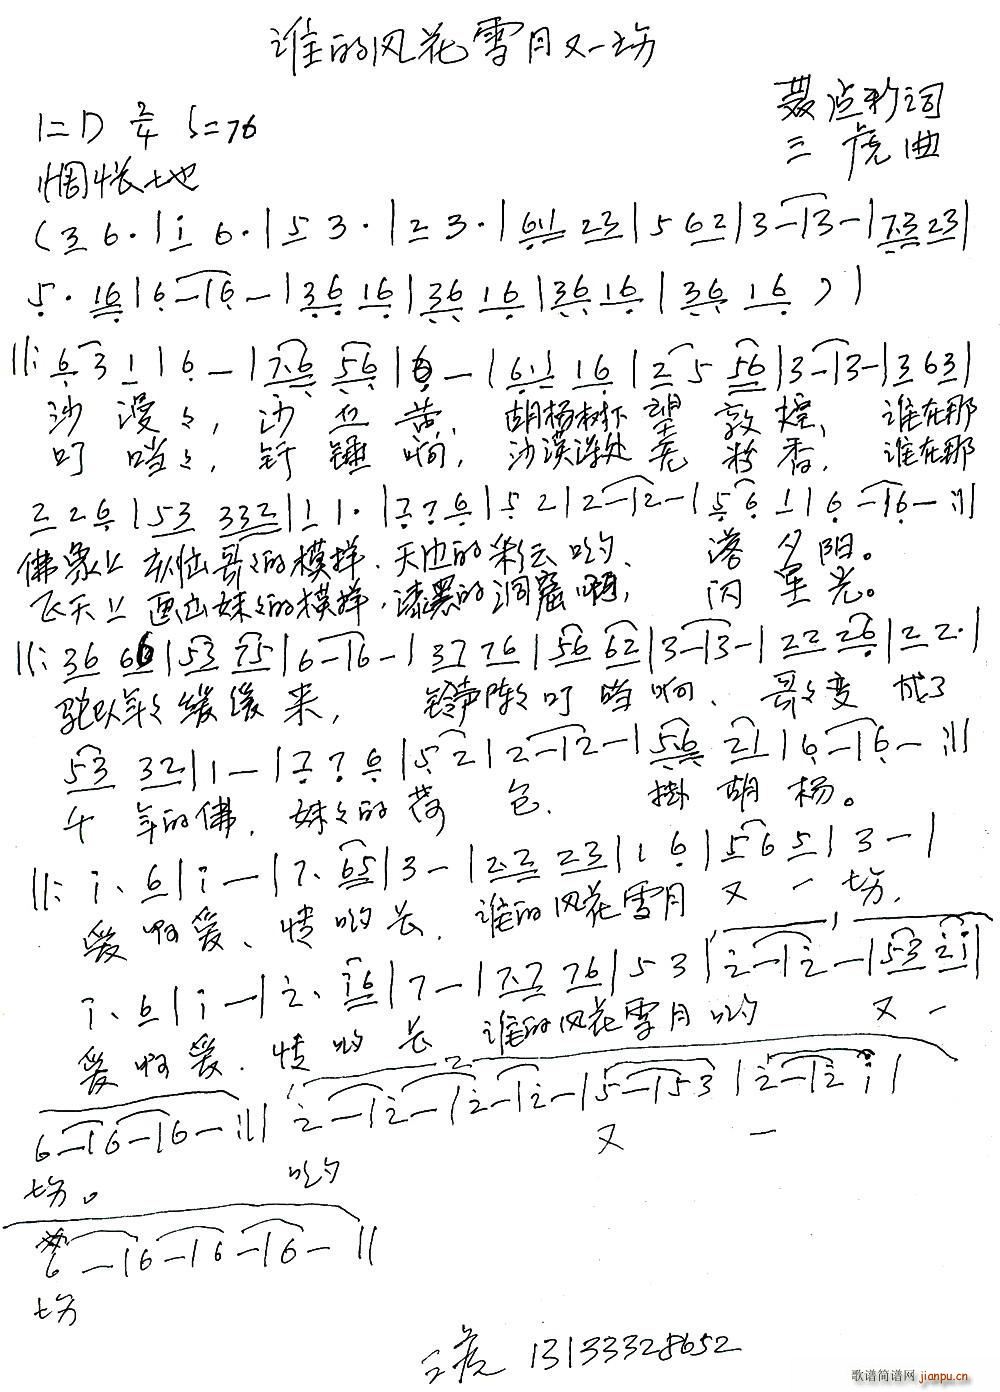 谁的风花雪月又一场
词
1=D 2/4 ♩=76
三虎曲
惆怅地
(3 6·|i 6·|5 3·|2 3·|61 23|5 62|3-|3-|7·3 23|
5· 16|6-|6-|36 16|36 16|36 16|36 16)|
||:6 3 1|6-|7·6 56|6-|6·1 16|2 5 56|3-|3-|3 63|
沙漫々,沙也苦,胡杨树下望敦煌,谁在那
叮当々,钎锤响,沙漠深处 粉香,谁在那
2 2 6|53 332|1 1·|7 7 6|5 2|2-|2-|5 6 1|6-|6-:||
佛象上 哥々的模样.天边的彩云哟、落夕阳。
飞天上画出妹々的模样,漆黑的洞窟啊,闪星光。
||:36 66|53 75|6-|6-|37 76|56 62|3-|3-|22 26|2 2·|
驼队年々缓缓来,铃声阵々叮当响、哥々变成了
53 32|1-|7 7 6|5 2|2-|2-|5·6 21|6-|6-:||
千年的佛,妹々的荷包.掛胡杨。
||:i· 6|i-|7· 65|3-|2·2 23|1 6|5 6 5|3-|
爱啊爱、情哟长.谁的风花雪月又一场,
i· 6|i-|2· i6|7-|7·7 76|5 3|2-|2-|53 2i|
爱啊爱.情哟长 谁的风花雪月哟 又一
6-|6-|6-:|| 2-|2-|2-|2-|5-|5 3|2-|2 i|
场。 哟 又 一
6-|6-|6-|6-||
场
三虎 13133328652
歌谱简谱网 jianpu.cn